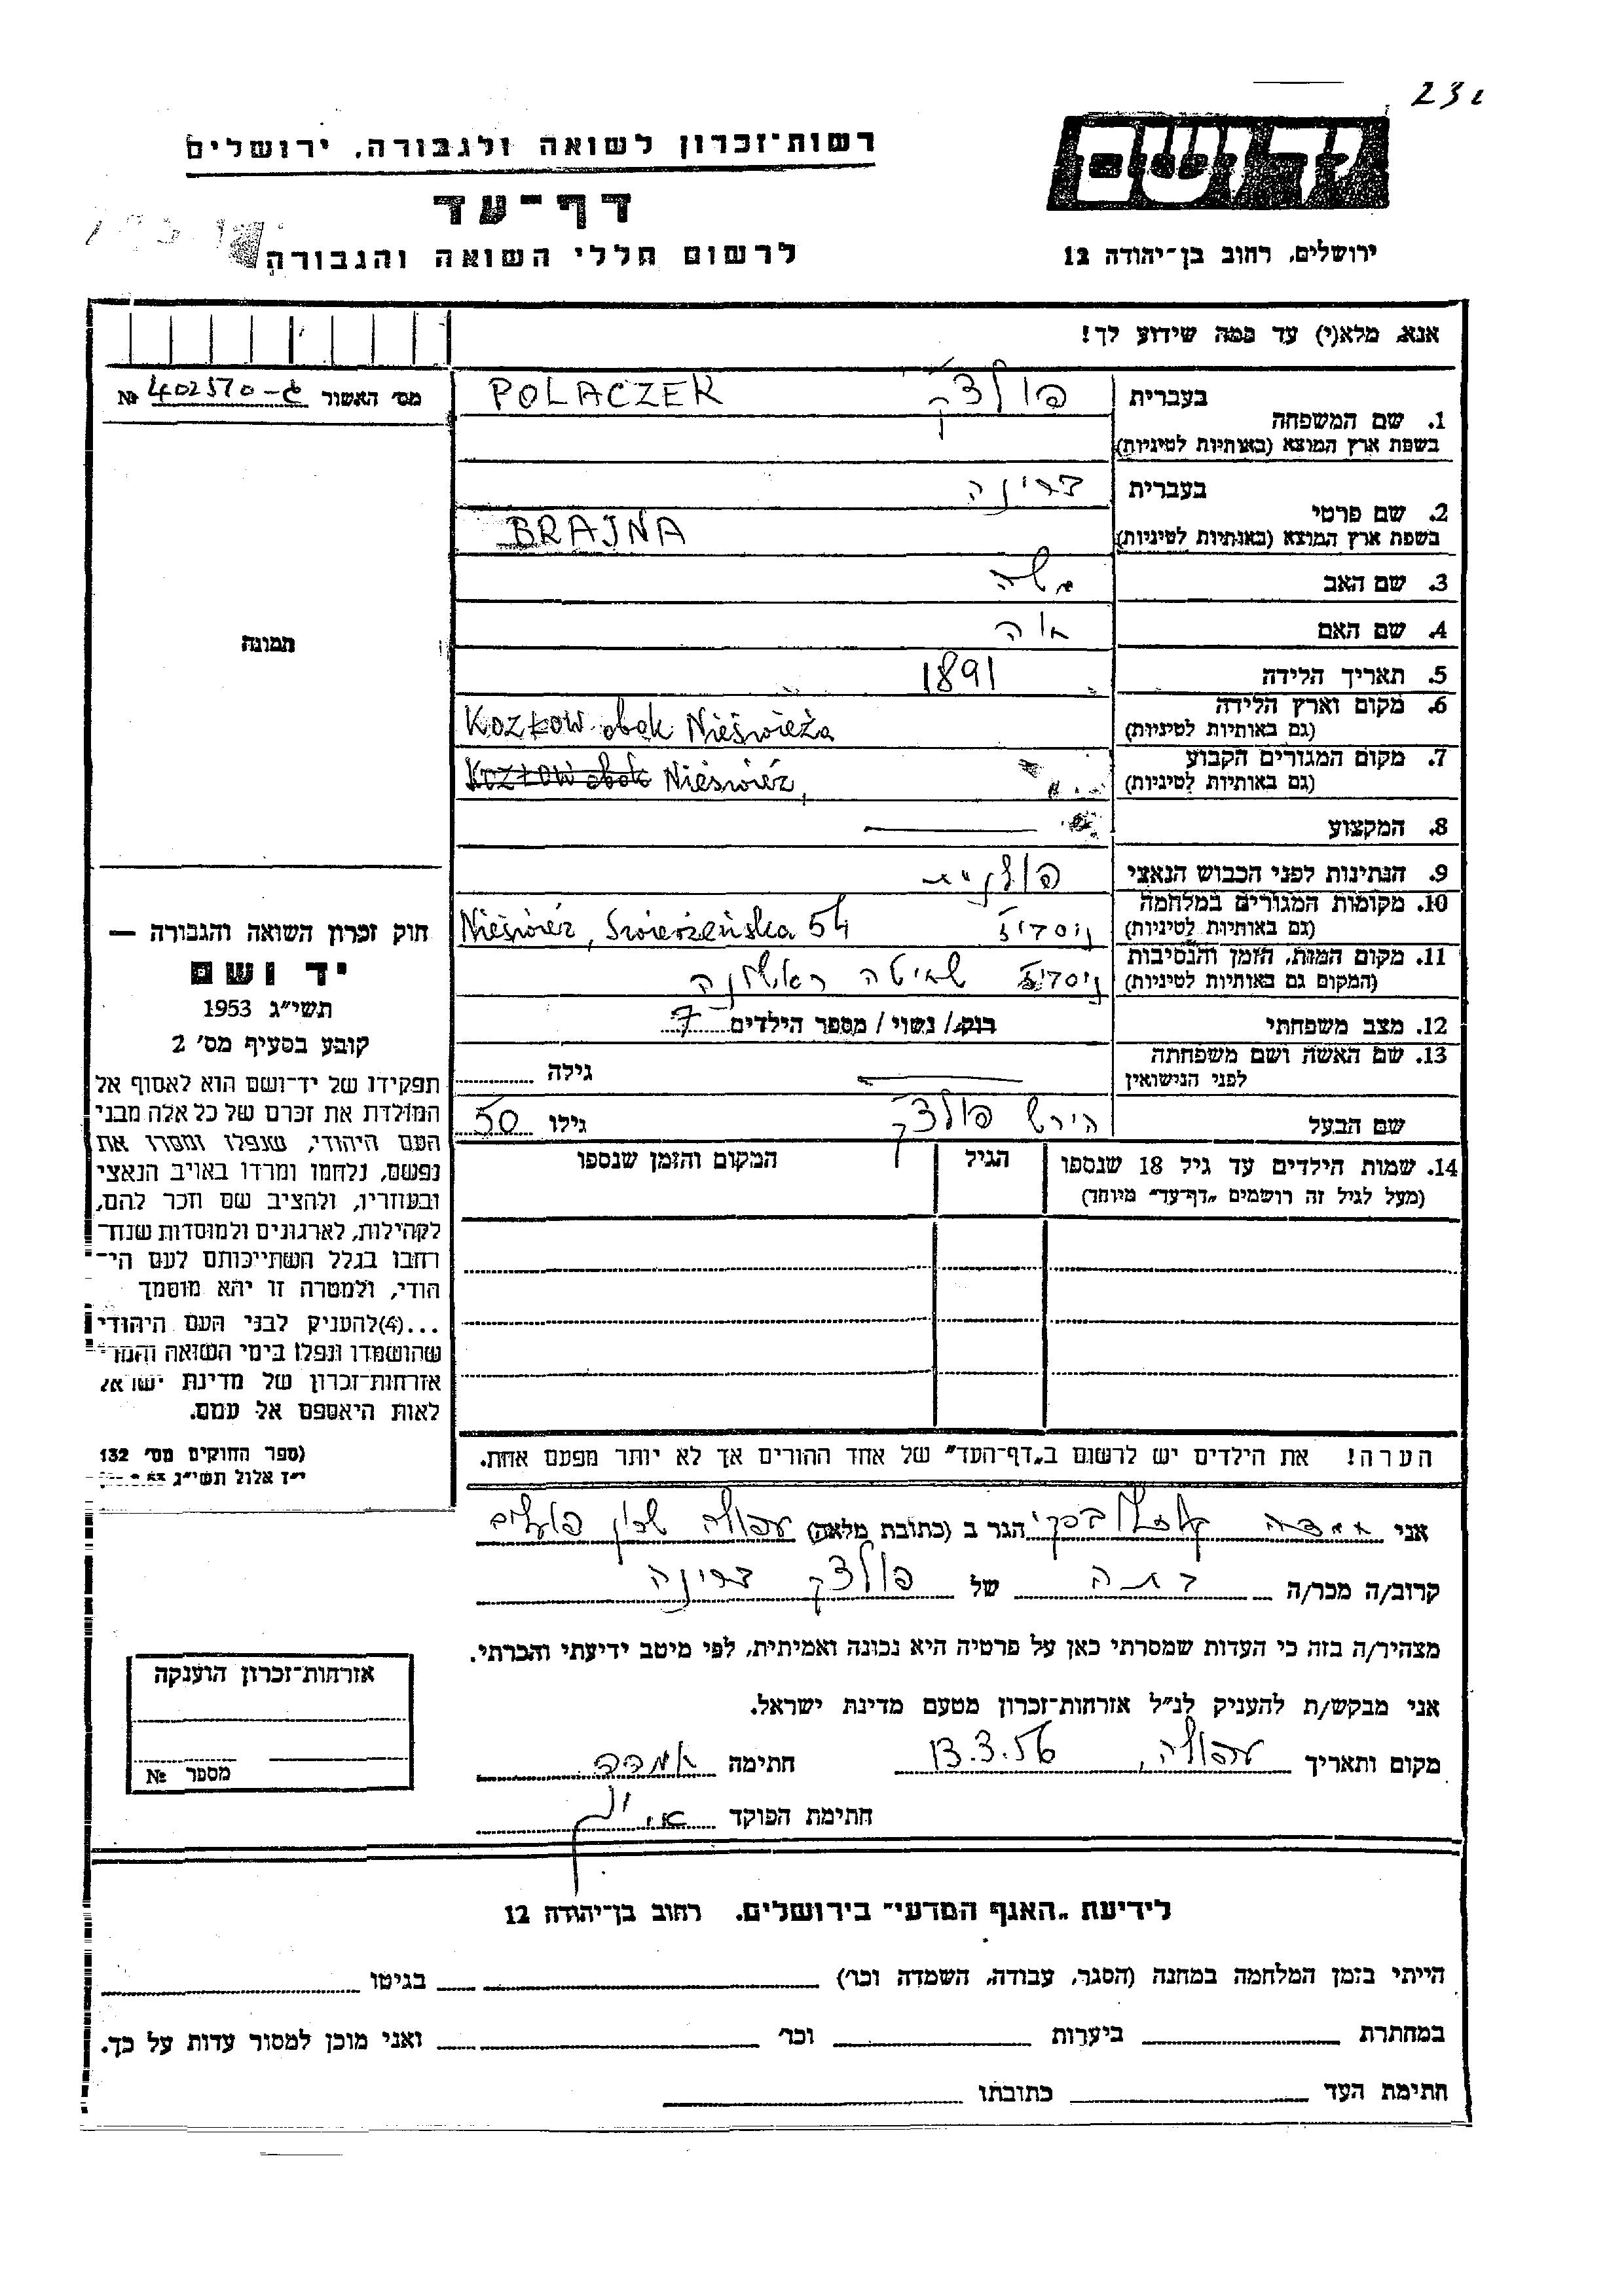 23
רשות־זכרון לשואה ולגבורה, ירושלים
דף־עד
לרשום חללי השואה והגבורה
יד ושם
ירושלים, רחוב בן־יהודה 12
אנא, מלא(י) עד כמה שידוע לך!
מס׳ האשור № 402570-ג
1. שם המשפחה
בעברית פולצ׳ק
בשפת ארץ המוצא (באותיות לטיניות) POLACZEK
2. שם פרטי
בעברית בריינה
בשפת ארץ המוצא (באותיות לטיניות) BRAJNA
3. שם האב משה
4. שם האם
5. תאריך הלידה 1891
6. מקום וארץ הלידה
(גם באותיות לטיניות) Kozłow obok Nieświeża
7. מקום המגורים הקבוע
(גם באותיות לטיניות) Kozłow obok Nieśwież,
8. המקצוע
9. הנתינות לפני הכבוש הנאצי פולנית
10. מקומות המגורים במלחמה
(גם באותיות לטיניות) ניסביז Nieśwież, Świerżeńska 54
11. מקום המות, הזמן והנסיבות
(המקום גם באותיות לטיניות) ניסביז שחיטה ראשונה
12. מצב משפחתי רווק / נשוי / מספר הילדים 7
13. שם האשה ושם משפחתה
לפני הנישואין גילה
שם הבעל הירש פולצ׳ק גילו 50
14. שמות הילדים עד גיל 18 שנספו הגיל המקום והזמן שנספו
(מעל לגיל זה רושמים „דף־עד״ מיוחד)
הערה! את הילדים יש לרשום ב„דף־העד״ של אחד ההורים אך לא יותר מפעם אחת.
תמונה
חוק זכרון השואה והגבורה —
יד ושם
תשי״ג 1953
קובע בסעיף מס׳ 2
תפקידו של יד־ושם הוא לאסוף אל
המולדת את זכרם של כל אלה מבני
העם היהודי, שנפלו ומסרו את
נפשם, נלחמו ומרדו באויב הנאצי
ובעוזריו, ולהציב שם וזכר להם,
לקהילות, לארגונים ולמוסדות שנח־
רבו בגלל השתייכותם לעם הי־
הודי, ולמטרה זו יהא מוסמך
...(4) להעניק לבני העם היהודי
שהושמדו ונפלו בימי השואה והמרי
אזרחות־זכרון של מדינת ישראל
לאות היאספם אל עמם.
(ספר החוקים מס׳ 132
י״ז אלול תשי״ג
אני הגר ב (כתובת מלאה) עפולה שכון פועלים
קרוב/ה מכר/ה בתה של פולצ׳ק בריינה
מצהיר/ה בזה כי העדות שמסרתי כאן על פרטיה היא נכונה ואמיתית, לפי מיטב ידיעתי והכרתי.
אני מבקש/ת להעניק לנ״ל אזרחות־זכרון מטעם מדינת ישראל.
מקום ותאריך עפולה, 13.3.56 חתימה
חתימת הפוקד
אזרחות־זכרון הוענקה
מספר №
לידיעת „האגף המדעי״ בירושלים. רחוב בן־יהודה 12
הייתי בזמן המלחמה במחנה (הסגר, עבודה, השמדה וכו׳) בגיטו
במחתרת ביערות וכו׳ ואני מוכן למסור עדות על כך.
חתימת העד כתובתו